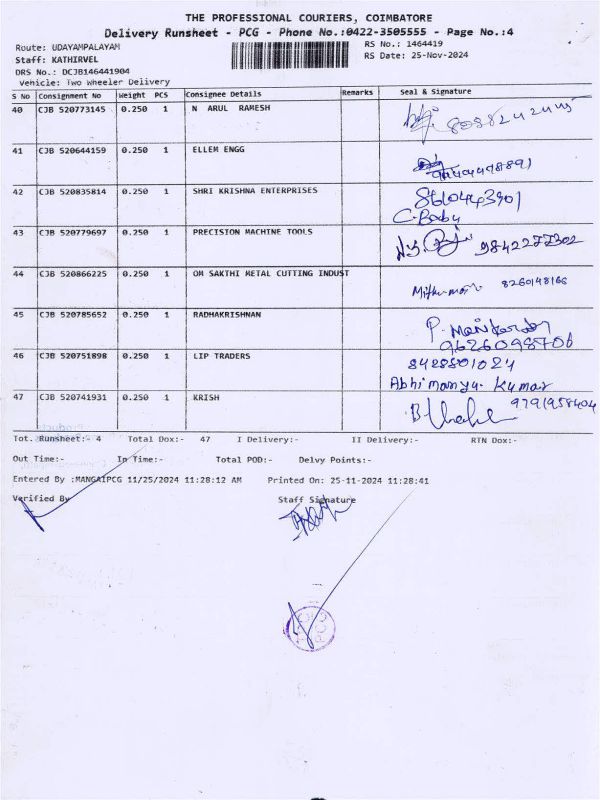 THE PROFESSIONAL COURIERS, COIMBATORE
Delivery Runsheet - PCG - Phone No.:0422-3505555 - Page No.:4
Route: UDAYAMPALAYAM
RS No.: 1464419
Staff: KATHIRVEL
RS Date: 25-Nov-2024
DRS No.: DCJB146441904
Vehicle: Two Wheeler Delivery
S No Consignment No Weight PCS Consignee Details Remarks Seal & Signature
40 CJB 520773145 0.250 1 N ARUL RAMESH
41 CJB 520644159 0.250 1 ELLEM ENGG
42 CJB 520835814 0.250 1 SHRI KRISHNA ENTERPRISES
8610443901
C. Baby
43 CJB 520779697 0.250 1 PRECISION MACHINE TOOLS
9842277302
44 CJB 520866225 0.250 1 OM SAKTHI METAL CUTTING INDUST
8260148166
45 CJB 520785652 0.250 1 RADHAKRISHNAN
9626098706
46 CJB 520751898 0.250 1 LIP TRADERS
8428801024
Abhimanyu. Kumar
47 CJB 520741931 0.250 1 KRISH
9791958404
Tot. Runsheet:- 4 Total Dox:- 47 I Delivery:- II Delivery:- RTN Dox:-
Out Time:- In Time:- Total POD:- Delvy Points:-
Entered By :MANGAIPCG 11/25/2024 11:28:12 AM Printed On: 25-11-2024 11:28:41
Verified By Staff Signature